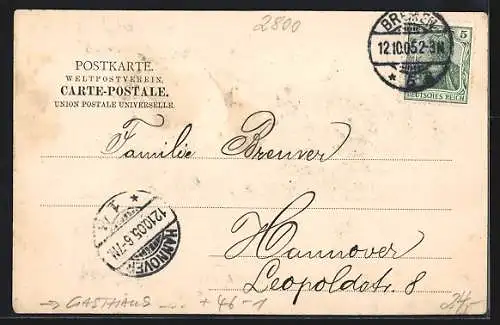 2800
POSTKARTE.
WELTPOSTVEREIN.
CARTE-POSTALE.
UNION POSTALE UNIVERSELLE.
BREMEN
12.10.05.2-3N.
* 5 *
5
DEUTSCHES REICH
Familie Brenver
HANNOVER
12.10.05.6-7N.
* 1 *
Hannover
Leopoldstr. 8
→ GASTHAUS ... + 46 -1
24,-